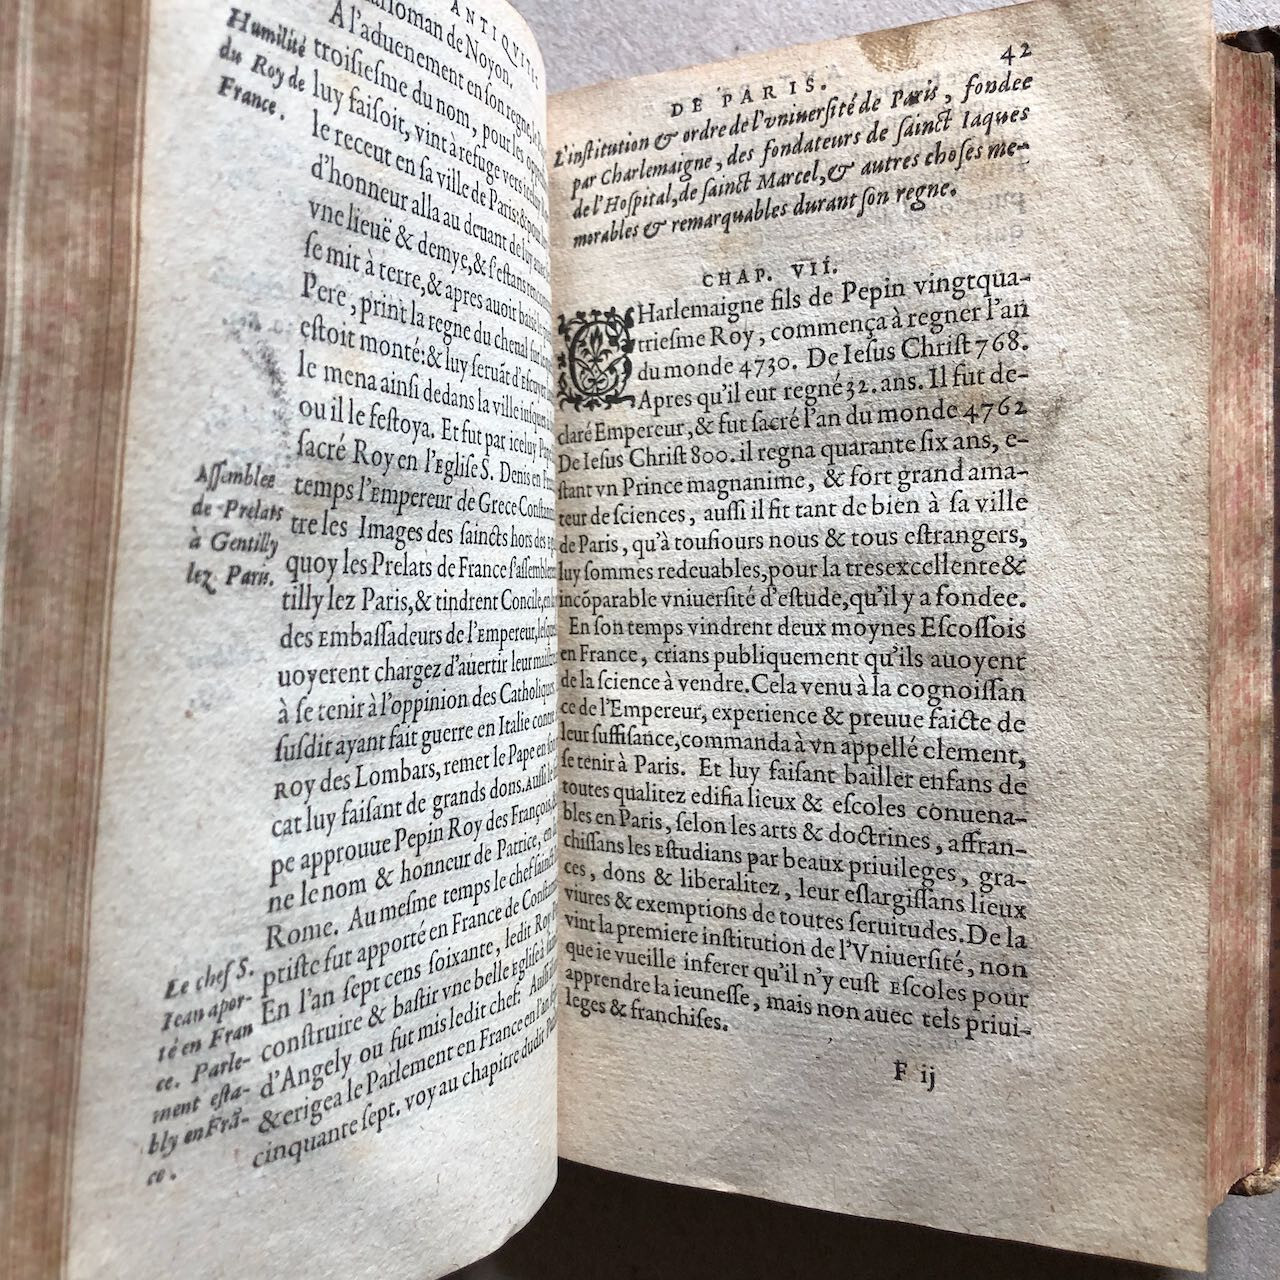 ANTIQVITE
de Noyon.
A l'aduenement en son regne, le
troisiesme du nom, pour les
luy faisoit, vint à refuge vers
le receut en sa ville de Paris: & pour
d'honneur alla au deuant de luy
vne lieuë & demye, & s'estans
se mit à terre, & apres auoir baisé
Pere, print la regne du cheual sur
estoit monté: & luy seruãt d'Escuyer
le mena ainsi dedans la ville iusques
ou il le festoya. Et fut par iceluy
sacré Roy en l'Eglise S. Denis en
temps l'Empereur de Grece
tre les Images des saincts hors des
quoy les Prelats de France s'assemblerent
tilly lez Paris, & tindrent Concile,
des Embassadeurs de l'Empereur,
uoyerent chargez d'auertir leur
à se tenir à l'oppinion des Catholiques
susdit ayant fait guerre en Italie
Roy des Lombars, remet le Pape en
cat luy faisant de grands dons. Aussi le
pe approuue Pepin Roy des François,
ne le nom & honneur de Patrice, en
Rome. Au mesme temps le chef sainct
ptiste fut apporté en France de
En l'an sept cens soixante, ledit Roy
construire & bastir vne belle Eglise à
d'Angely ou fut mis ledit chef. Aussi
& erigea le Parlement en France en l'an
cinquante sept. voy au chapitre dudit
Humilité
du Roy de
France.
Assemblee
de Prelats
à Gentilly
lez Paris.
Le chef S.
Iean apor-
té en Fran
ce. Parle-
ment esta-
bly en Frã-
ce.
DE PARIS. 42
L'institution & ordre de l'vniuersité de Paris, fondee
par Charlemaigne, des fondateurs de sainct Iaques
de l'Hospital, de sainct Marcel, & autres choses me-
morables & remarquables durant son regne.
CHAP. VII.
CHarlemaigne fils de Pepin vingtqua-
triesme Roy, commença à regner l'an
du monde 4730. De Iesus Christ 768.
Apres qu'il eut regné 32. ans. Il fut de-
claré Empereur, & fut sacré l'an du monde 4762
De Iesus Christ 800. il regna quarante six ans, e-
stant vn Prince magnanime, & fort grand ama-
teur de sciences, aussi il fit tant de bien à sa ville
de Paris, qu'à tousiours nous & tous estrangers,
luy sommes redeuables, pour la tresexcellente &
incõparable vniuersité d'estude, qu'il y a fondee.
En son temps vindrent deux moynes Escossois
en France, crians publiquement qu'ils auoyent
de la science à vendre. Cela venu à la cognoissan
ce de l'Empereur, experience & preuue faicte de
leur suffisance, commanda à vn appellé clement,
se tenir à Paris. Et luy faisant bailler enfans de
toutes qualitez edifia lieux & escoles conuena-
bles en Paris, selon les arts & doctrines, affran-
chissans les Estudians par beaux priuileges, gra-
ces, dons & liberalitez, leur eslargissans lieux
viures & exemptions de toutes seruitudes. De la
vint la premiere institution de l'Vniuersité, non
que ie vueille inferer qu'il n'y eust Escoles pour
apprendre la ieunesse, mais non auec tels priui-
leges & franchises.
F ij